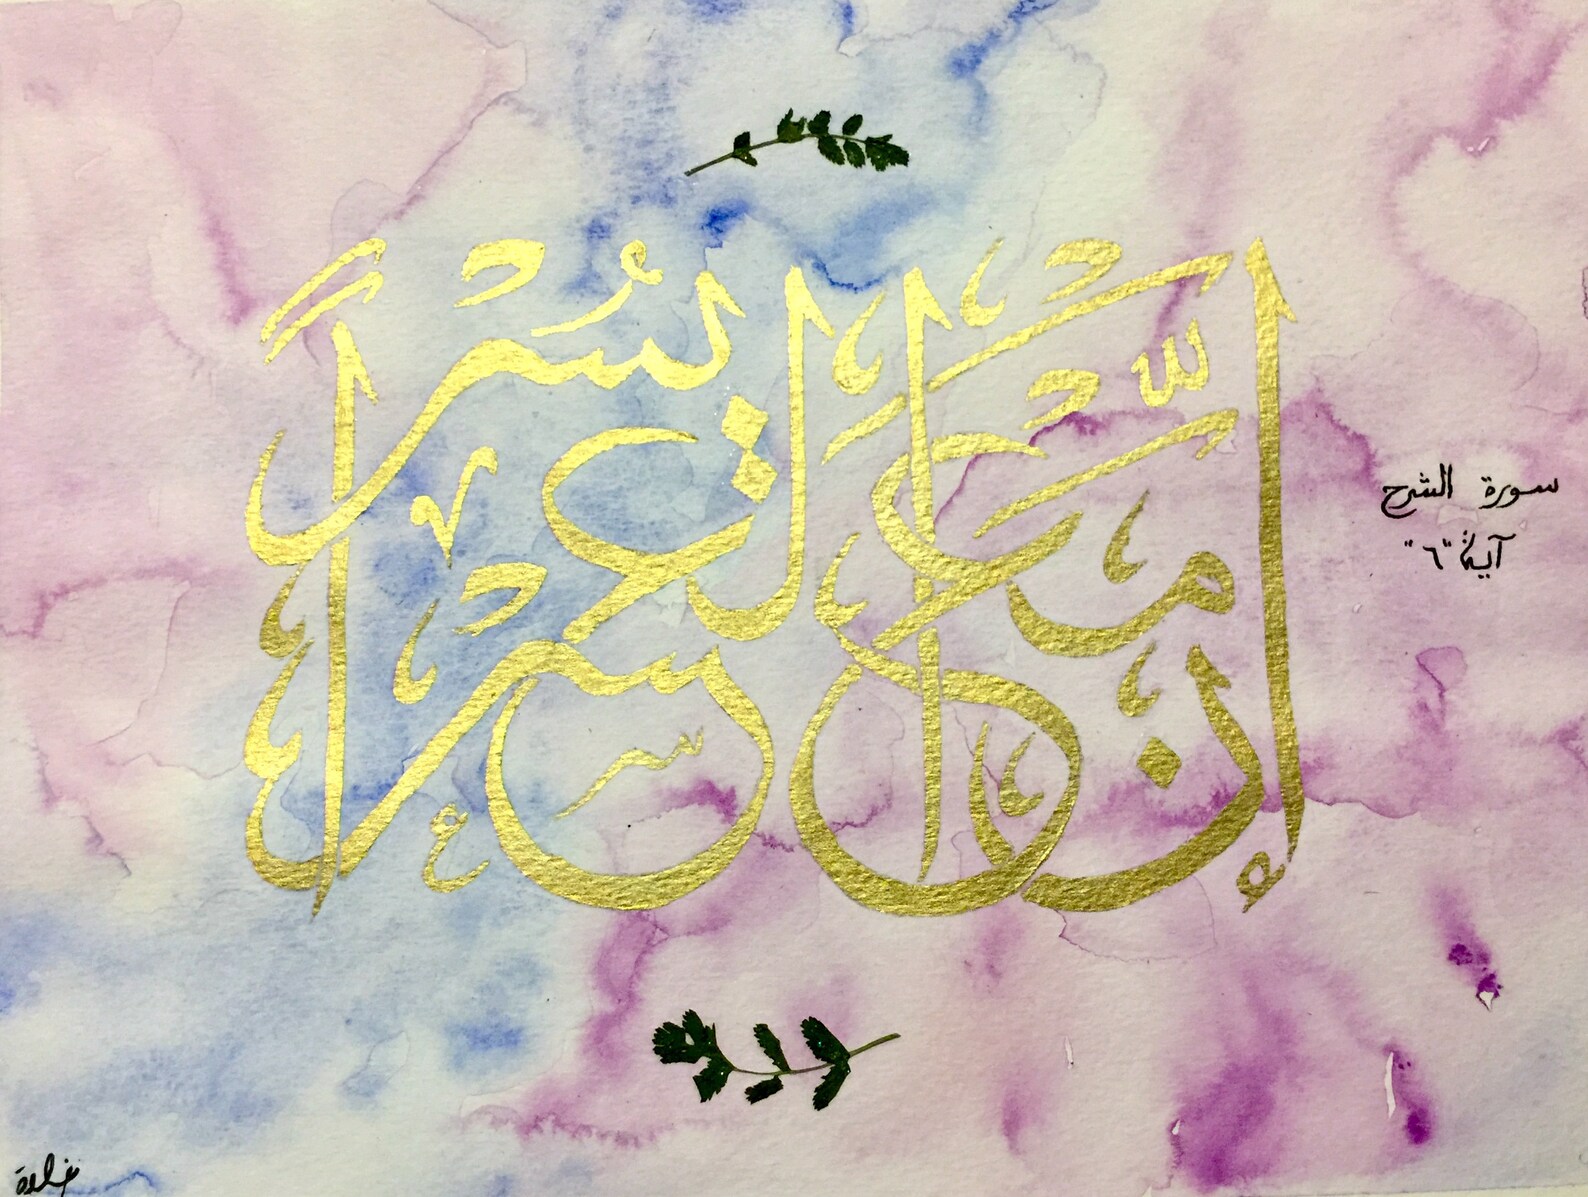 إِنَّ مَعَ الْعُسْرِ يُسْرًا
سورة الشرح
آية "٦"